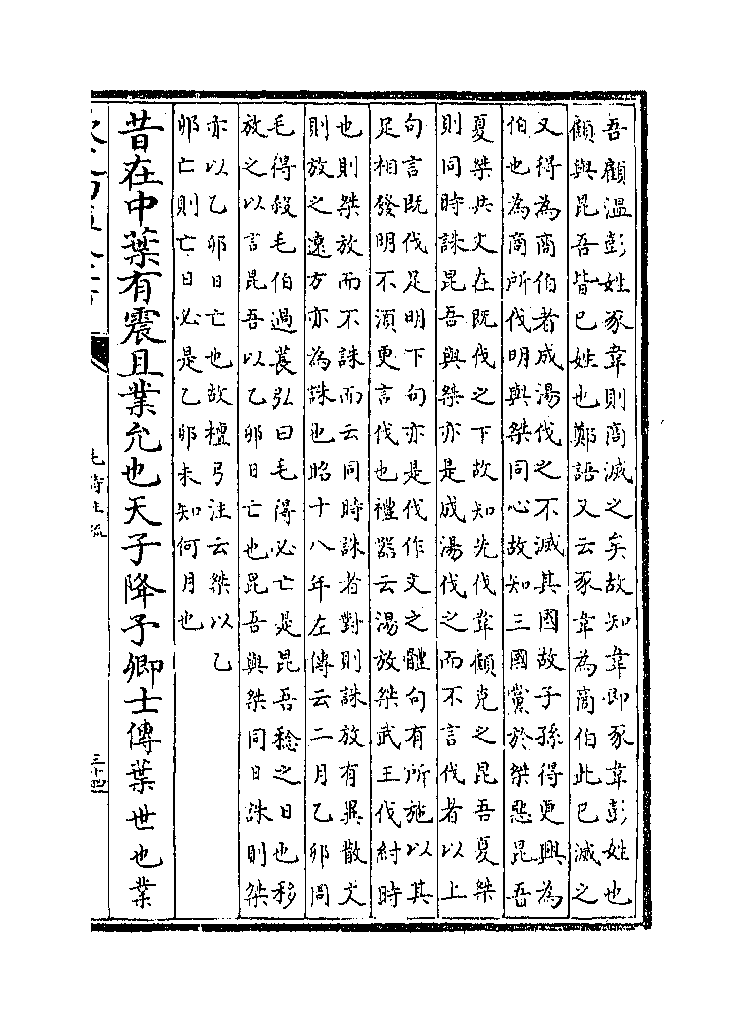 吾顧溫彭姓豕韋則商滅之矣故知韋即豕韋彭姓也
顧與昆吾皆巳姓也鄭語又云豕韋為商伯此巳滅之
又得為商伯者成湯伐之不滅其國故子孫得更興為
伯也為商所伐明與桀同心故知三國黨於桀惡昆吾
夏桀共文在既伐之下故知先伐韋顧克之昆吾夏桀
則同時誅昆吾與桀亦是成湯伐之而不言伐者以上
句言既伐足明下句亦是伐作文之體句有所施以其
足相發明不須更言伐也禮器云湯放桀武王伐紂時
也則桀放而不誅而云同時誅者對則誅放有異散文
則放之遠方亦為誅也昭十八年左傳云二月乙卯周
毛得殺毛伯過萇弘曰毛得必亡是昆吾稔之日也移
放之以言昆吾以乙卯日亡也昆吾與桀同日誅則桀
亦以乙卯日亡也故檀弓注云桀以乙
卯亡則亡日必是乙卯未知何月也
昔在中葉有震且業允也天子降予卿士傳葉世也業
三十四